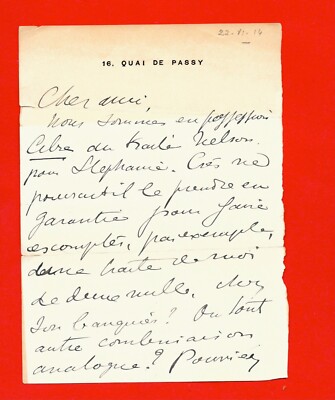 22-11-16
16, QUAI DE PASSY
Cher ami,
Nous sommes en possession
du traité Nelson
pour Stéphanie. Crès ne
pourrait-il le prendre en
garantie pour faire
escompter, par exemple,
une traite de moi
de deux mille, chez
son banquier? Ou tout
autre combinaison
analogue? Pourriez